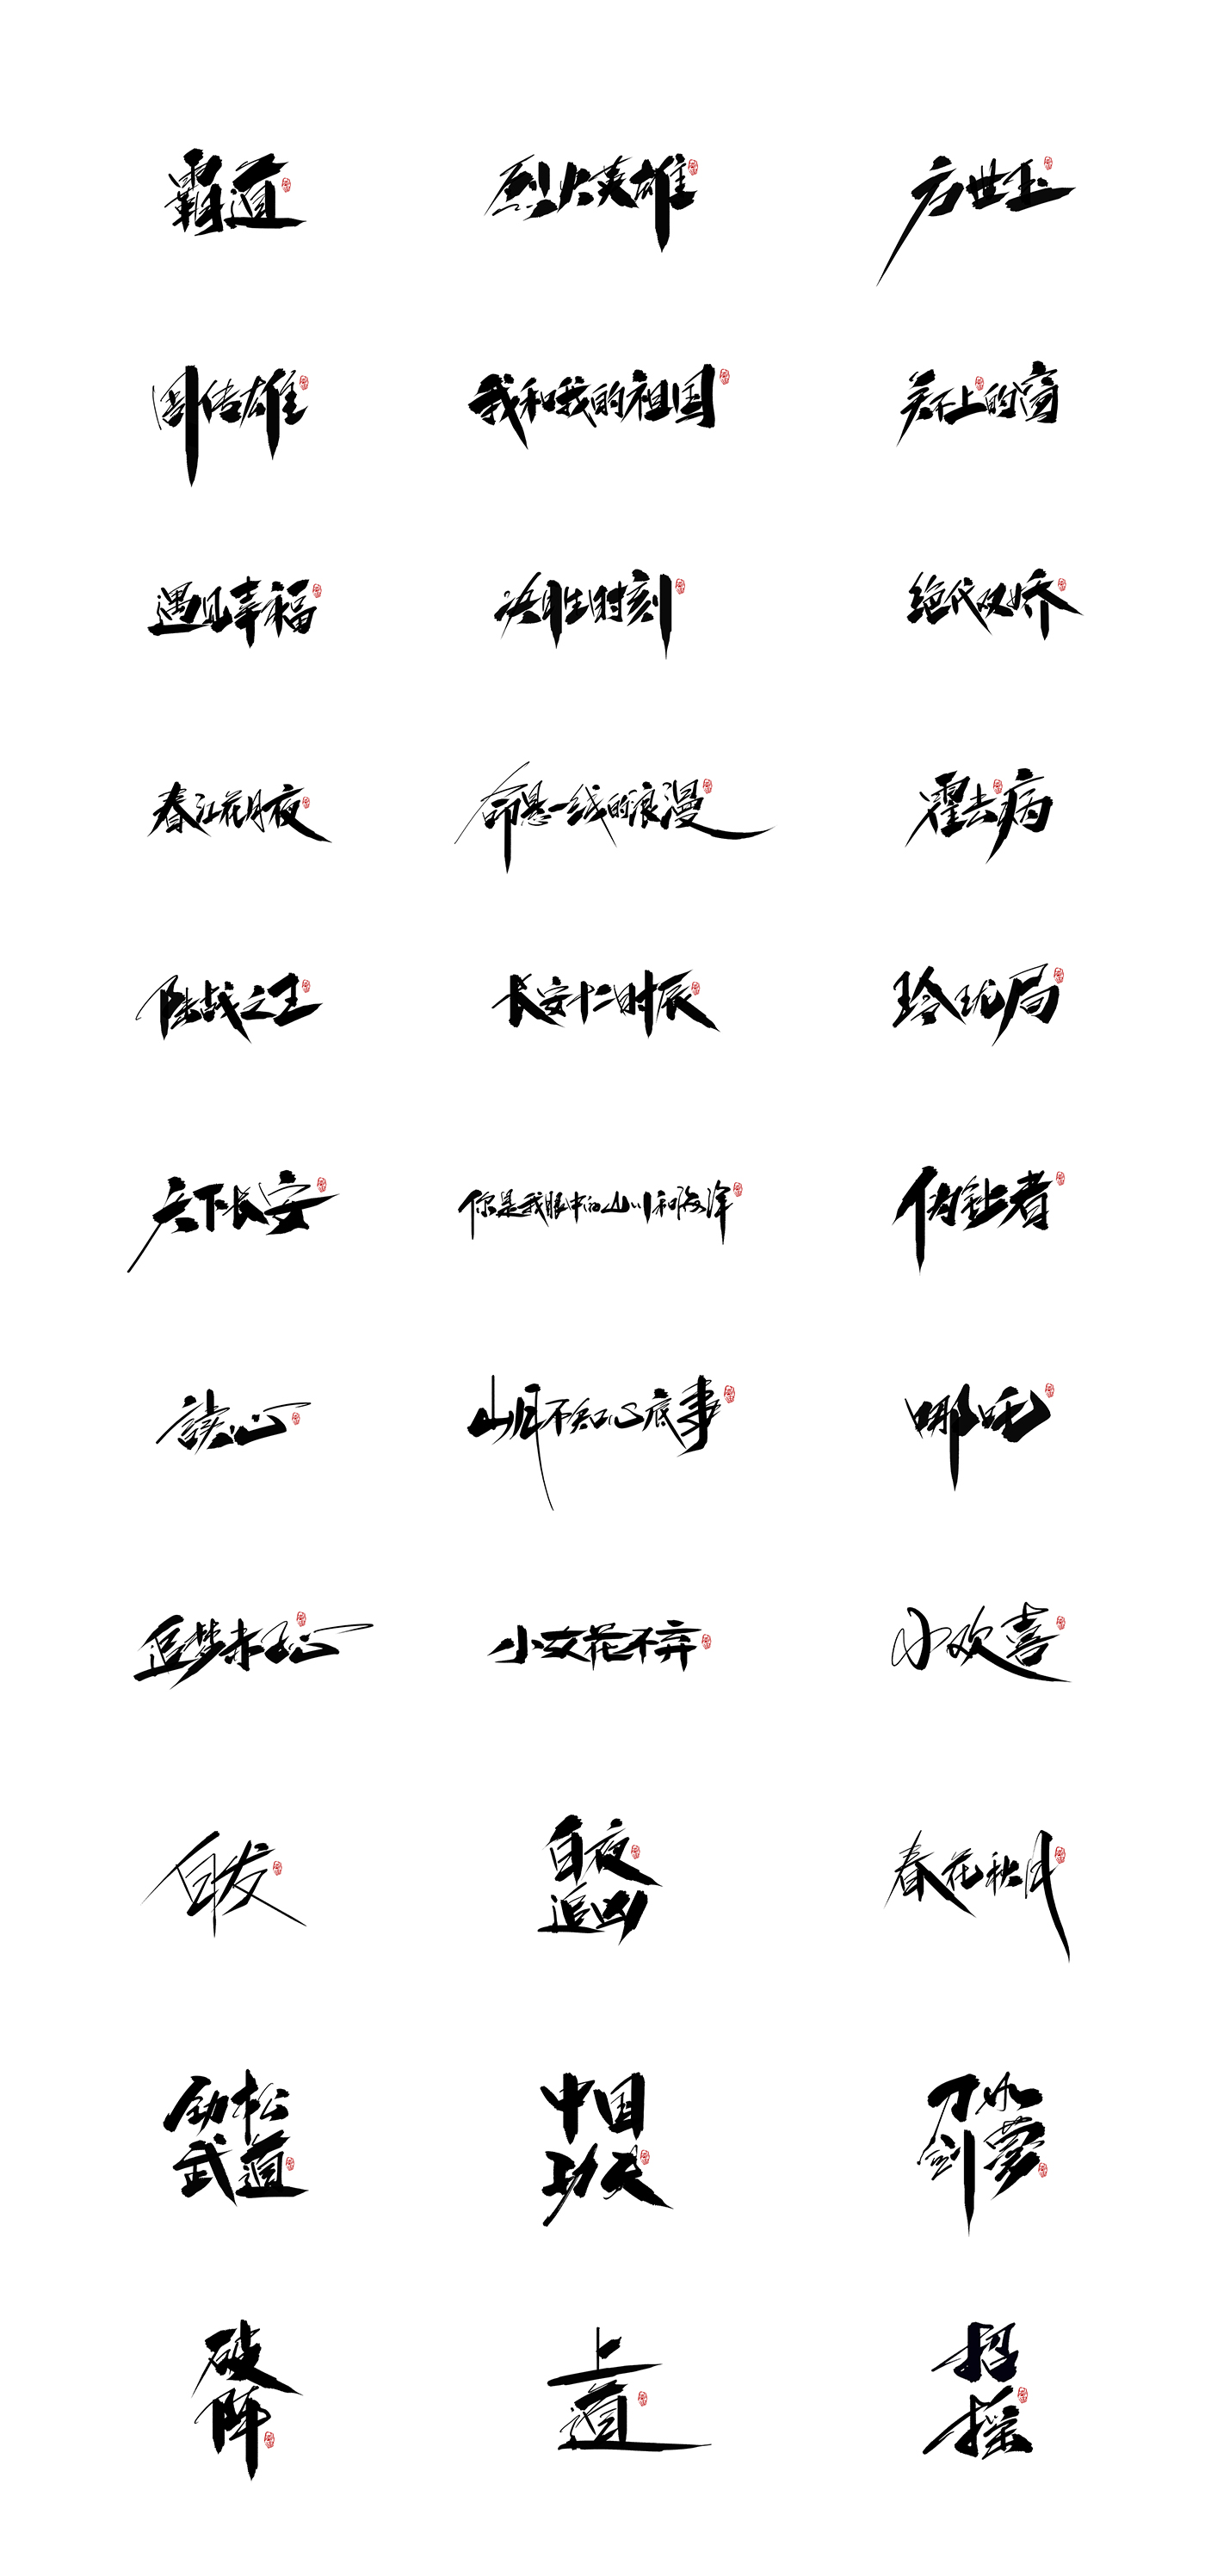 霸道
烈火英雄
方世玉
周传雄
我和我的祖国
关不上的窗
遇见幸福
决胜时刻
绝代双娇
春江花月夜
命悬一线的浪漫
霍去病
陆战之王
长安十二时辰
玲珑局
天下长安
你是我眼中的山川和海洋
伪钻者
读心
山月不知心底事
哪吒
追梦赤子心
小女花不弃
小欢喜
白发
白夜
追凶
春花秋月
劲松
武道
中国
功夫
刀冰
剑梦
破
阵
上
道
招
摇